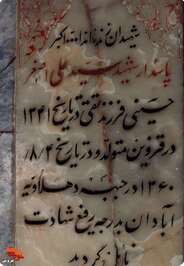 شهیدان زنده اند الله اکبر
پاسدار شهید سید علی اصغر
حسینی فرزند تقی در تاریخ ۱۳۴۱
در قزوین متولد و در تاریخ ۸/۴/
۱۳۶۰ در جبهه دهلاویه
آبادان بدرجه رفیع شهادت
نائل گردید